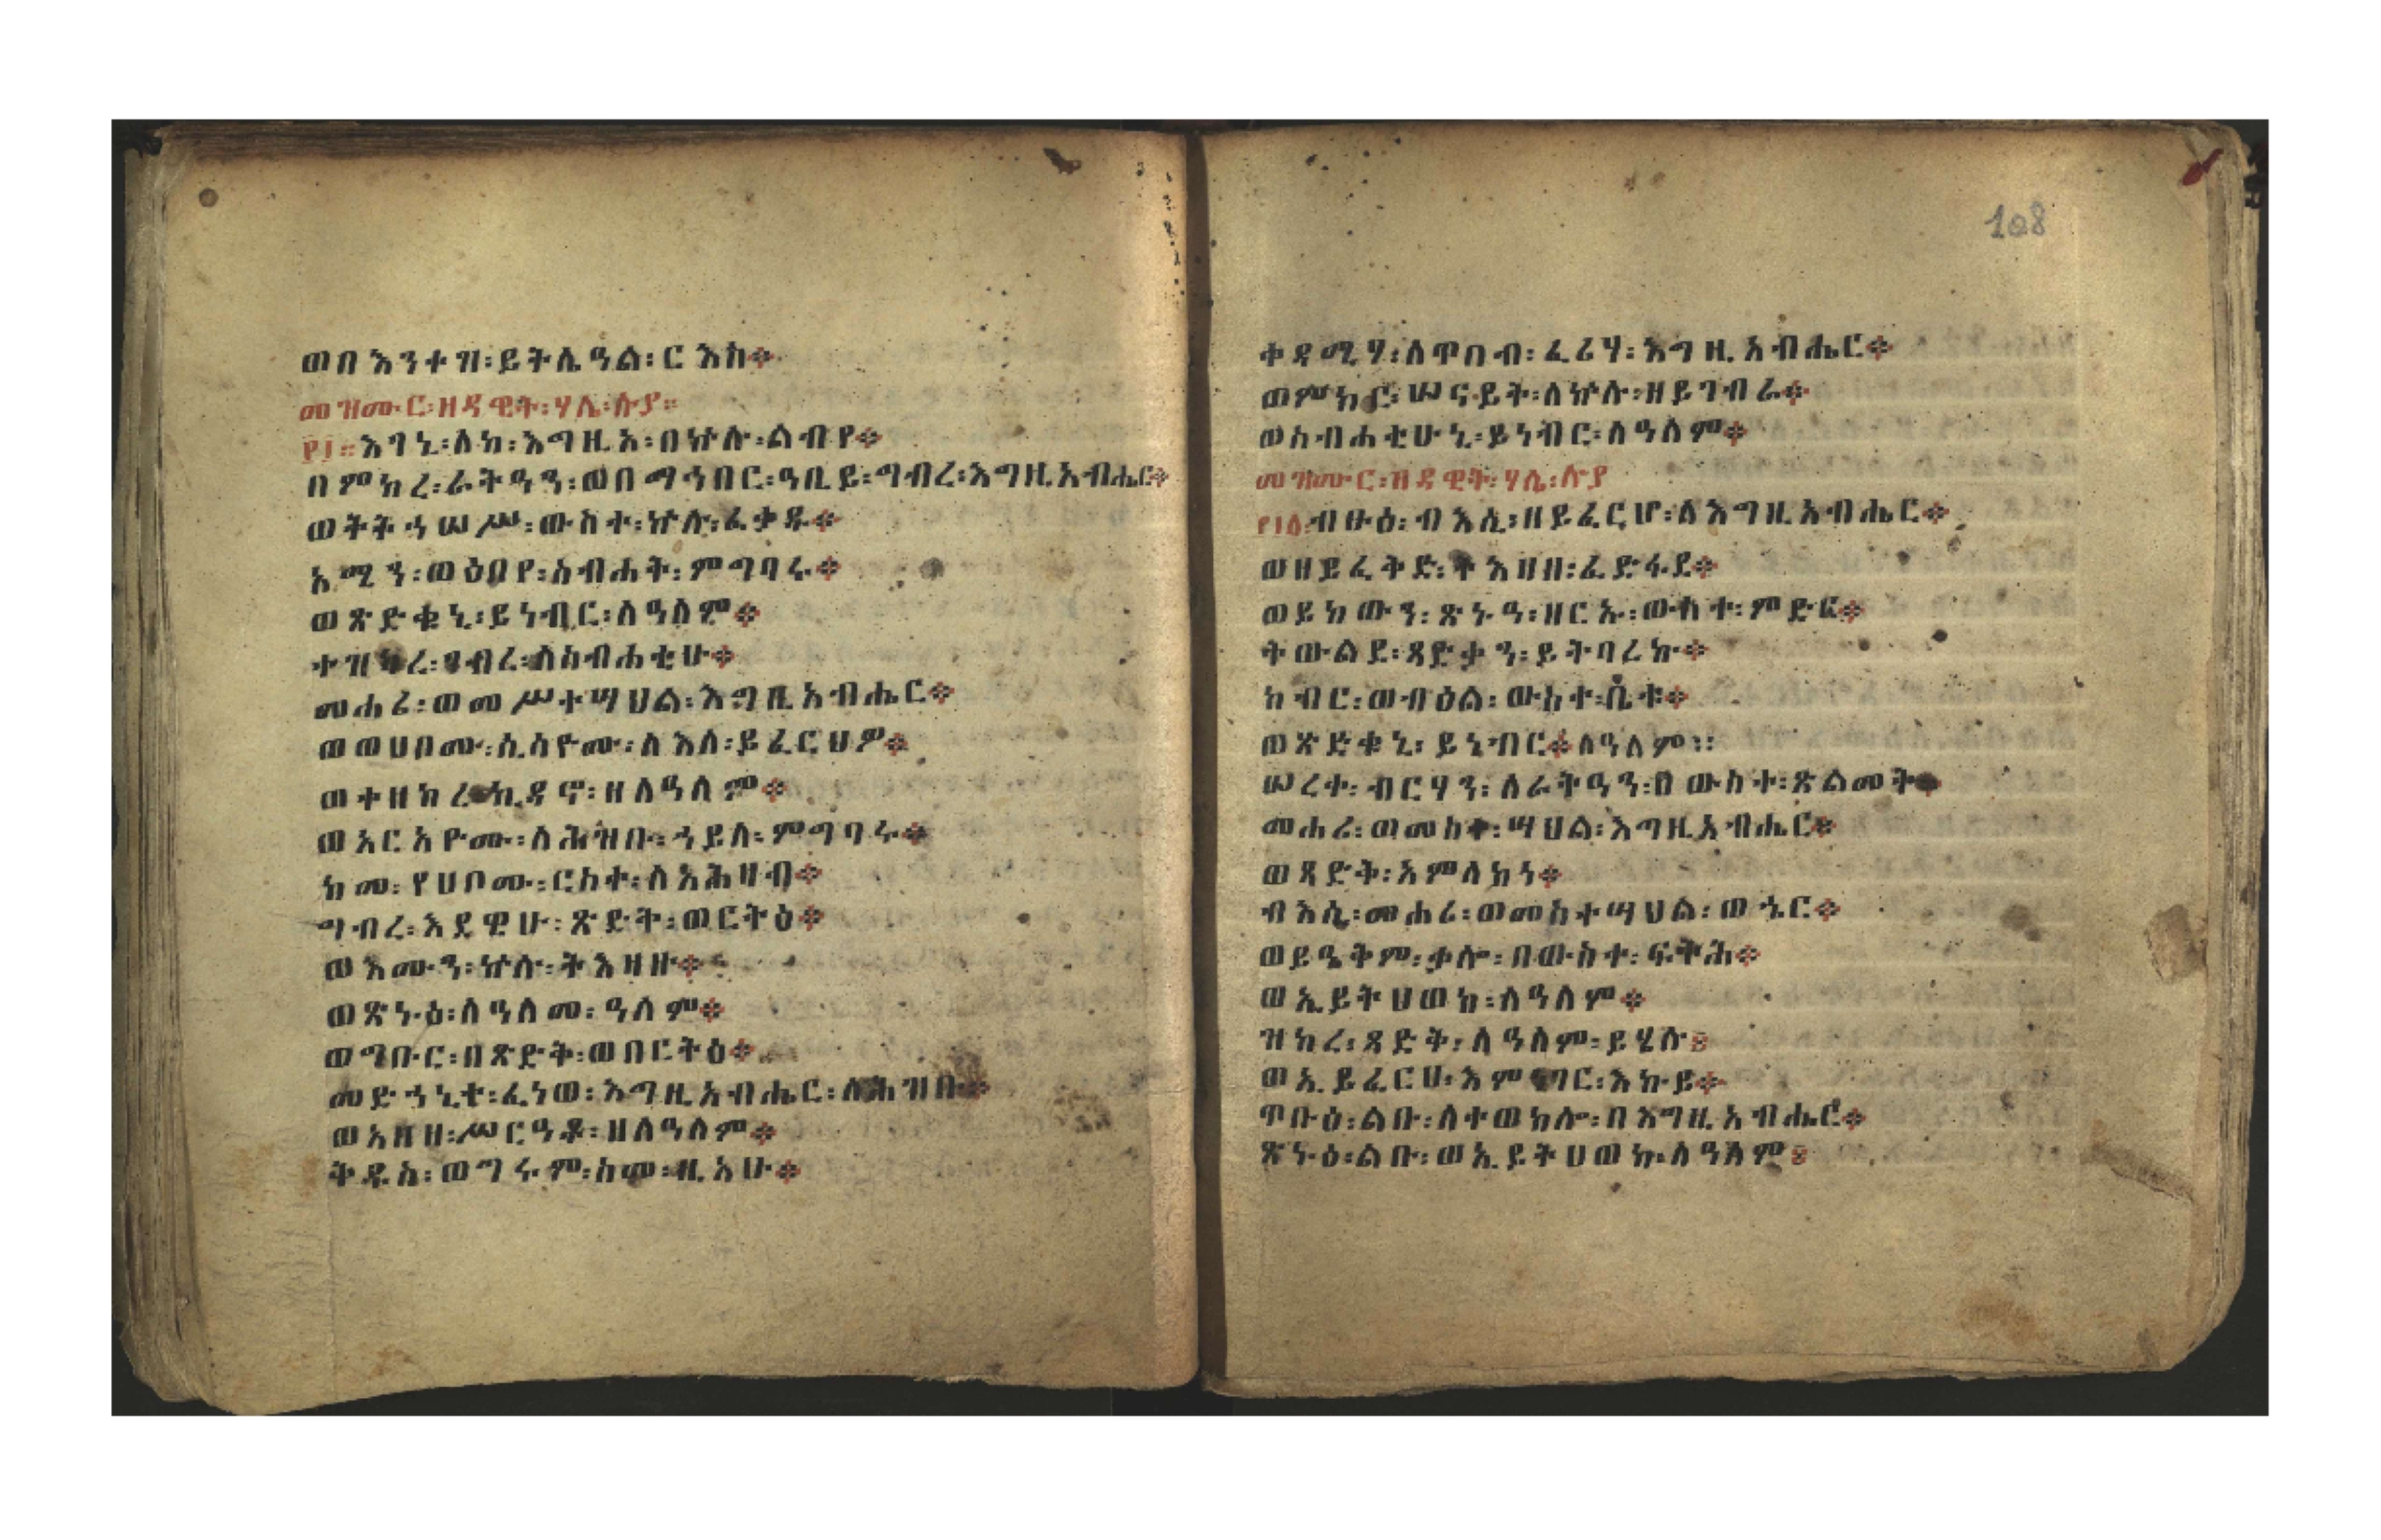 ወበእንተዝ፡ይትሌዓል፡ርእስ።
መዝሙር፡ዘዳዊት፡ሃሌ፡ሉያ።
፻፲። እገኒ፡ለከ፡እግዚአ፡በኵሉ፡ልብየ።
በምክረ፡ራትዓን፡ወበማኅበር፡ዓቢይ፡ግብረ፡እግዚአብሔር።
ወትትኃሠሥ፡ውስተ፡ኵሉ፡ፈቃዱ።
አሚን፡ወዕበየ፡ስብሐት፡ምግባሩ።
ወጽድቁኒ፡ይነብር፡ለዓለም።
ተዝከረ፡ገብረ፡ለስብሐቲሁ።
መሐሪ፡ወመሥተሣህል፡እግዚአብሔር።
ወወሀቦሙ፡ሲሳዮሙ፡ለእለ፡ይፈርህዎ።
ወተዘከረ፡ኪዳኖ፡ዘለዓለም።
ወአርአዮሙ፡ለሕዝቡ፡ኃይለ፡ምግባሩ።
ከመ፡የሀቦሙ፡ርስተ፡ለአሕዛብ።
ግብረ፡እደዊሁ፡ጽድት፡ወርትዕ።
ወእሙን፡ኵሉ፡ትእዛዙ።
ወጽኑዕ፡ለዓለመ፡ዓለም።
ወግቡር፡በጽድቅ፡ወበርትዕ።
መድኃኒተ፡ፈነወ፡እግዚአብሔር፡ለሕዝቡ።
ወአዘዘ፡ሥርዓቶ፡ዘለዓለም።
ቅዱስ፡ወግሩም፡ስመ፡ዚአሁ።
108
ቀዳሚሃ፡ለጥበብ፡ፈሪሃ፡እግዚአብሔር።
ወምክር፡ሠናይት፡ለኵሉ፡ዘይገብራ።
ወስብሐቲሁኒ፡ይነብር፡ለዓለም።
መዝሙር፡ዘዳዊት፡ሃሌ፡ሉያ
፻፲፩፡ብፁዕ፡ብእሲ፡ዘይፈርሆ፡ለእግዚአብሔር።
ወዘይፈትድ፡ትእዛዘ፡ፈድፋደ።
ወይከውን፡ጽኑዓ፡ዘርኡ፡ውስተ፡ምድር።
ትውልደ፡ጻድቃን፡ይትባረኩ።
ክብር፡ወብዕል፡ውስተ፡ቤቱ።
ወጽድቁኒ፡ይኔብር፡ለዓለም።
ሠረቀ፡ብርሃን፡ለራትዓን፡በውስተ፡ጽልመት።
መሐሪ፡ወመስተ፡ሣህል፡እግዚአብሔር።
ወጻድቅ፡አምላክነ።
ብእሲ፡መሐሪ፡ወመስተሣህል፡ወኄር።
ወይዔቅም፡ቃሎ፡በውስተ፡ፍትሕ።
ወኢይትሀወክ፡ለዓለም።
ዝክረ፡ጻድቅ፡ለዓለም፡ይሄሉ።
ወኢይፈርህ፡እምነገር፡እኩይ።
ጥቡዕ፡ልቡ፡ለተወክሎ፡በእግዚአብሔር።
ጽኑዕ፡ልቡ፡ወኢይትሀወኩ፡ለዓለም።